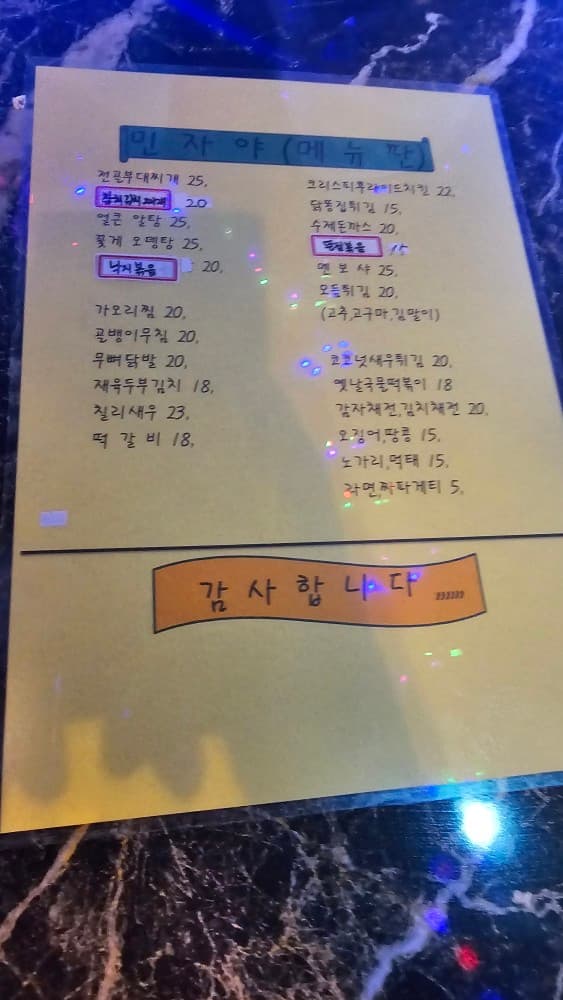 민 자 야 (메 뉴 판)
전골부대찌개 25,
참치김치찌개 20
얼큰 알탕 25,
꽃게 오뎅탕 25,
낙지볶음 20,
가오리찜 20,
골뱅이무침 20,
무뼈닭발 20,
재육두부김치 18,
칠리새우 23,
떡 갈 비 18,
크리스피후라이드치킨 22,
닭똥집튀김 15,
수제돈까스 20,
15
멘 보 샤 25,
모듬튀김 20,
(고추,고구마,김말이)
코코넛새우튀김 20,
옛날국물떡볶이 18
감자채전,김치채전 20,
오징어,땅콩 15,
노가리,먹태 15,
라면,짜파게티 5,
감 사 합 니 다 ,,,,,,,